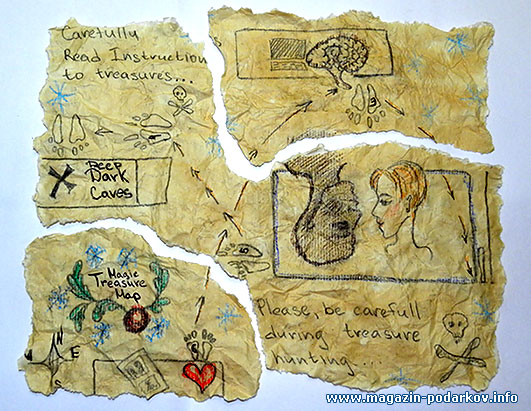 Carefully
Read Instruction
to treasures...
Deep
Dark
Caves
Magic
Treasure
Map
N
E
Please, be carefull
during treasure
hunting....
www.magazin-podarkov.info